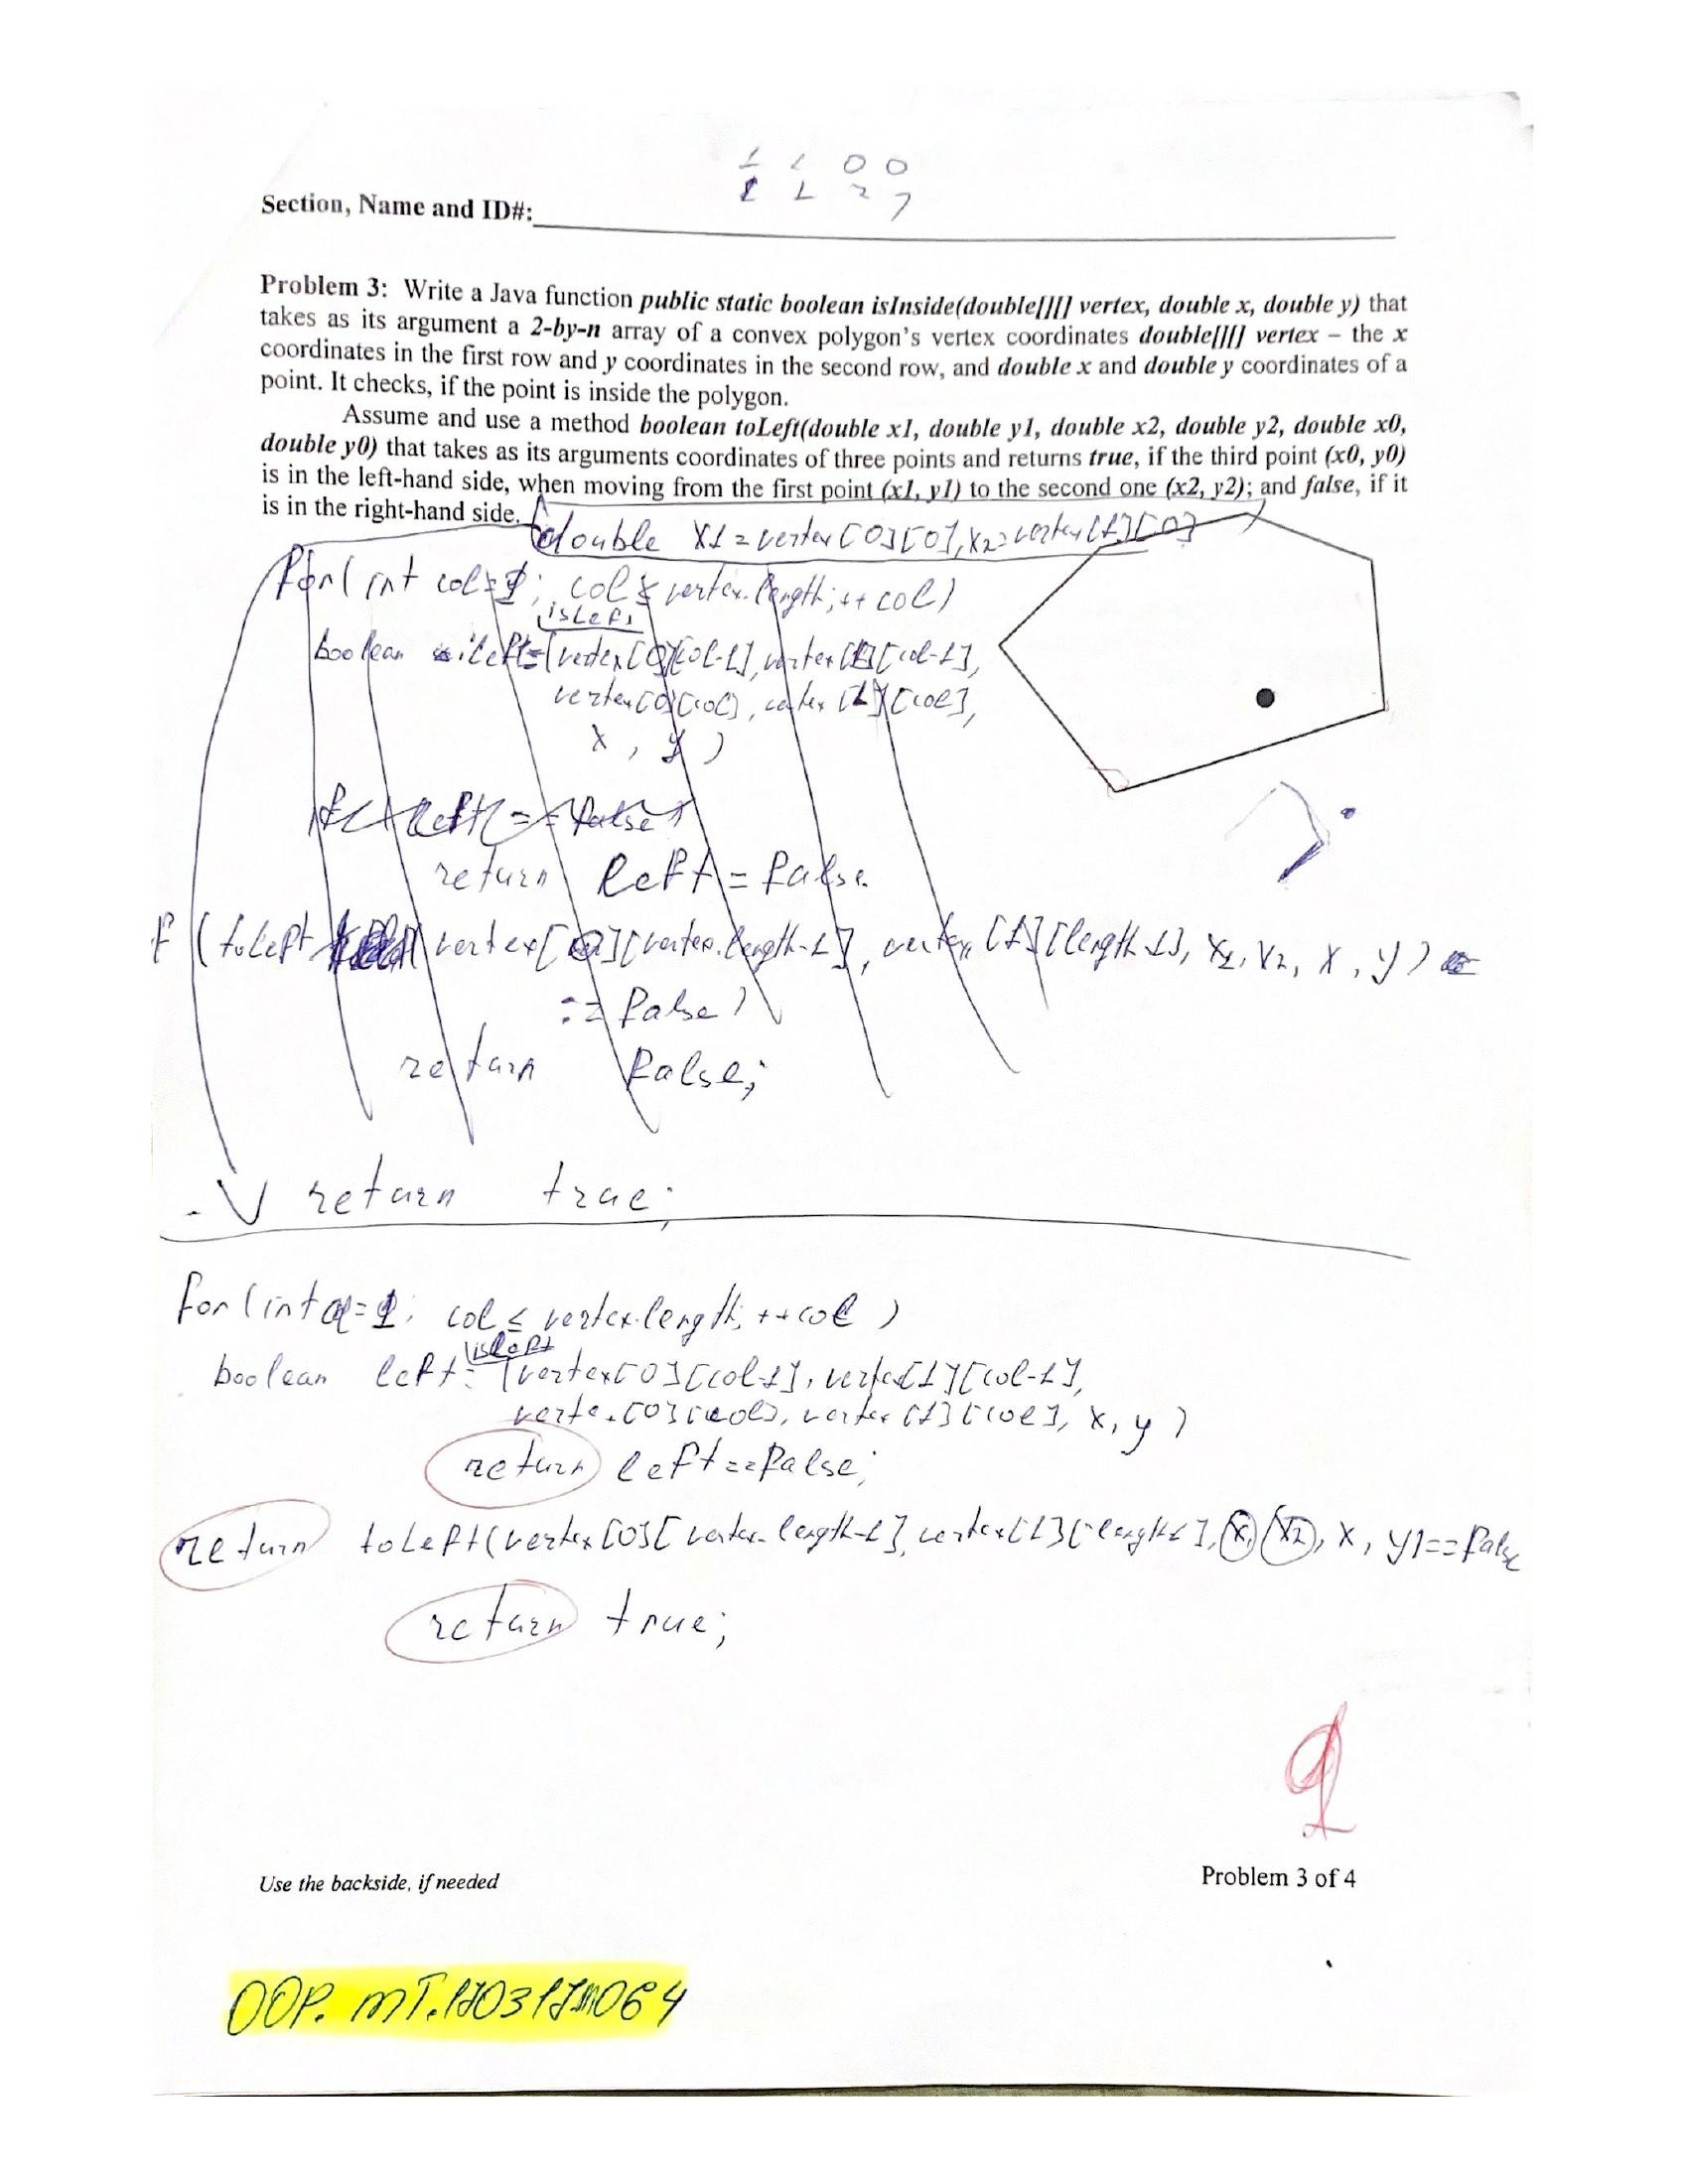 1 1 0 0
1 1 2 7
Section, Name and ID#:
Problem 3: Write a Java function public static boolean isInside(double[][] vertex, double x, double y) that
takes as its argument a 2-by-n array of a convex polygon's vertex coordinates double[][] vertex – the x
coordinates in the first row and y coordinates in the second row, and double x and double y coordinates of a
point. It checks, if the point is inside the polygon.
Assume and use a method boolean toLeft(double x1, double y1, double x2, double y2, double x0,
double y0) that takes as its arguments coordinates of three points and returns true, if the third point (x0, y0)
is in the left-hand side, when moving from the first point (x1, y1) to the second one (x2, y2); and false, if it
is in the right-hand side.
double x1=vertex[0][0], x2=vertex[1][0]
for(int col=1; col≤vertex.length;++col)
isLeft
boolean left=(vertex[0][col-1],vertex[1][col-1],
vertex[0][col], vertex[1][col],
x, y)
if(left==false)
return left=false
f (toLeft(vertex[0][vertex.length-1], vertex[1][length-1], x1, x2, x, y)
== false)
return false;
return true;
for(int col=1; col≤vertex.length; ++col)
isLeft
boolean left=(vertex[0][col-1], vertex[1][col-1],
vertex[0][col], vertex[1][col], x, y)
return left==false;
return toLeft(vertex[0][vertex.length-1], vertex[1][length-1], x1, x2, x, y)==false
return true;
9
Use the backside, if needed
Problem 3 of 4
OOP. MT.